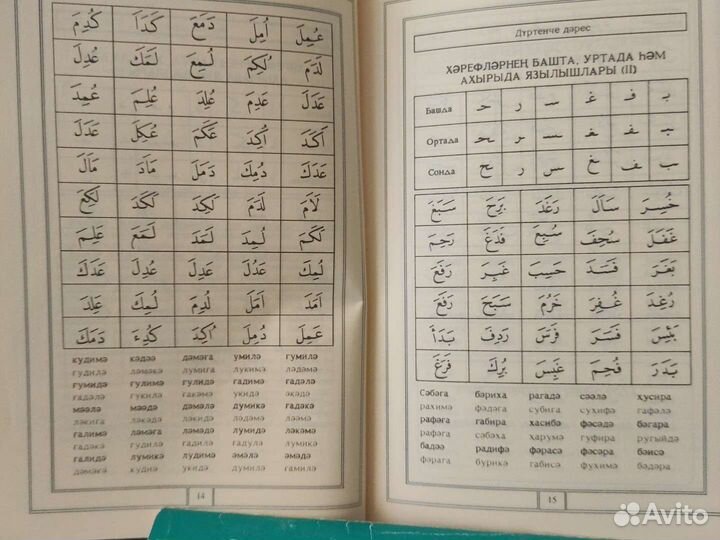 كُدِمَ كَدَاَ دَمَعَ اُمِلَ عُمِلَ
عُدِلَ لَمَكَ لُمِعَ لُكِمَ لَدَمَ
عُمِدَ عُلِمَ عُلِدَ عَدِمَ عَدَلَ
عَدَلَ عُكِلَ عَكَمَ اُكِدَ اَكَدَ
مَالَ مَادَ دَمَلَ دُمِكَ عَدَكَ
لَكِعَ لَكَدَ لَكِدَ لَدَمَ لَاَمَ
عَلِمَ لَمَعَ لَمَدَ لُمِدَ لَكَمَ
عَدَكَ عُدِلَ عُدِلَ عَدُلَ لُمِكَ
عَلِدَ لُمِكَ لُدِمَ اَمَلَ اَمَدَ
دَمَكَ كُدِءَ اُكِدَ دُمِلَ عَمِلَ
кудимә кәдәә дәмәга умилә гумилә
гудилә ләмәкә лумига лукимә ләдәмә
гумидә гулимә гулидә гадимә гадәлә
гадәлә гукилә гакәмә укидә әкәдә
мәәлә мәәдә дәмәлә думикә гадәкә
ләкига ләкәдә ләкидә ләдәмә ләәмә
галимә ләмәга ләмәдә лумидә ләкәмә
гадәкә гудилә гадилә гадулә лумикә
галидә лумикә лудимә әмәлә әмәдә
дәмәкә кудиә укидә думилә гамилә
14
Дүртенче дәрес
ХӘРЕФЛӘРНЕҢ БАШТА, УРТАДА ҺӘМ
АХЫРЫДА ЯЗЫЛЫШЛАРЫ (II)
Башда حـ ر سـ غـ فـ بـ
Ортада ـحـ ـر ـسـ ـغـ ـفـ ـبـ
Сонда ـح ـر ـس ـغ ـف ـب
سَبَغَ بَرِحَ رَغَدَ سَاَلَ خُسِرَ
رَحِمَ فَدَغَ سُبِغَ سُحِفَ غَفَلَ
رَفَعَ غَبِرَ حَسِبَ فَسَدَ بَغَرَ
رَفَعَ سَبَحَ خَرُمَ غُفِرَ رُغِدَ
بَدَأَ رَدِفَ فَرَسَ فَسَرَ بَئِسَ
فَرَغَ بُرِكَ غَبِسَ فُحِمَ بَدَرَ
Сәбәга бәриха рагадә сәәлә хусира
рахимә фәдәга субига сухифә гафәлә
рафәга габира хасибә фәсәдә бәгара
рафәга сәбәха харумә гуфира ругыйдә
бадәә радифә фәрасә фәсәра бәисә
фәрага бурикә габисә фухимә бәдәра
15
Avito